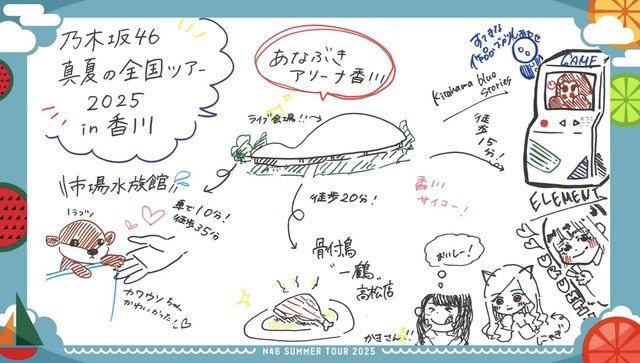 乃木坂46
真夏の全国ツアー
2025
in 香川
あなぶき
アリーナ香川
ライブ会場!!
Kitahama blue
stories
徒歩
15分!
GAME
ELEMENT
市場水族館
車で10分!
徒歩35分
徒歩20分!
香川
サイコー!
カワウソちゃん
かわいかった
骨付鳥
"一鶴"
高松店
おいしー!
かまさん!!
にゃぎ
N46 SUMMER TOUR 2025